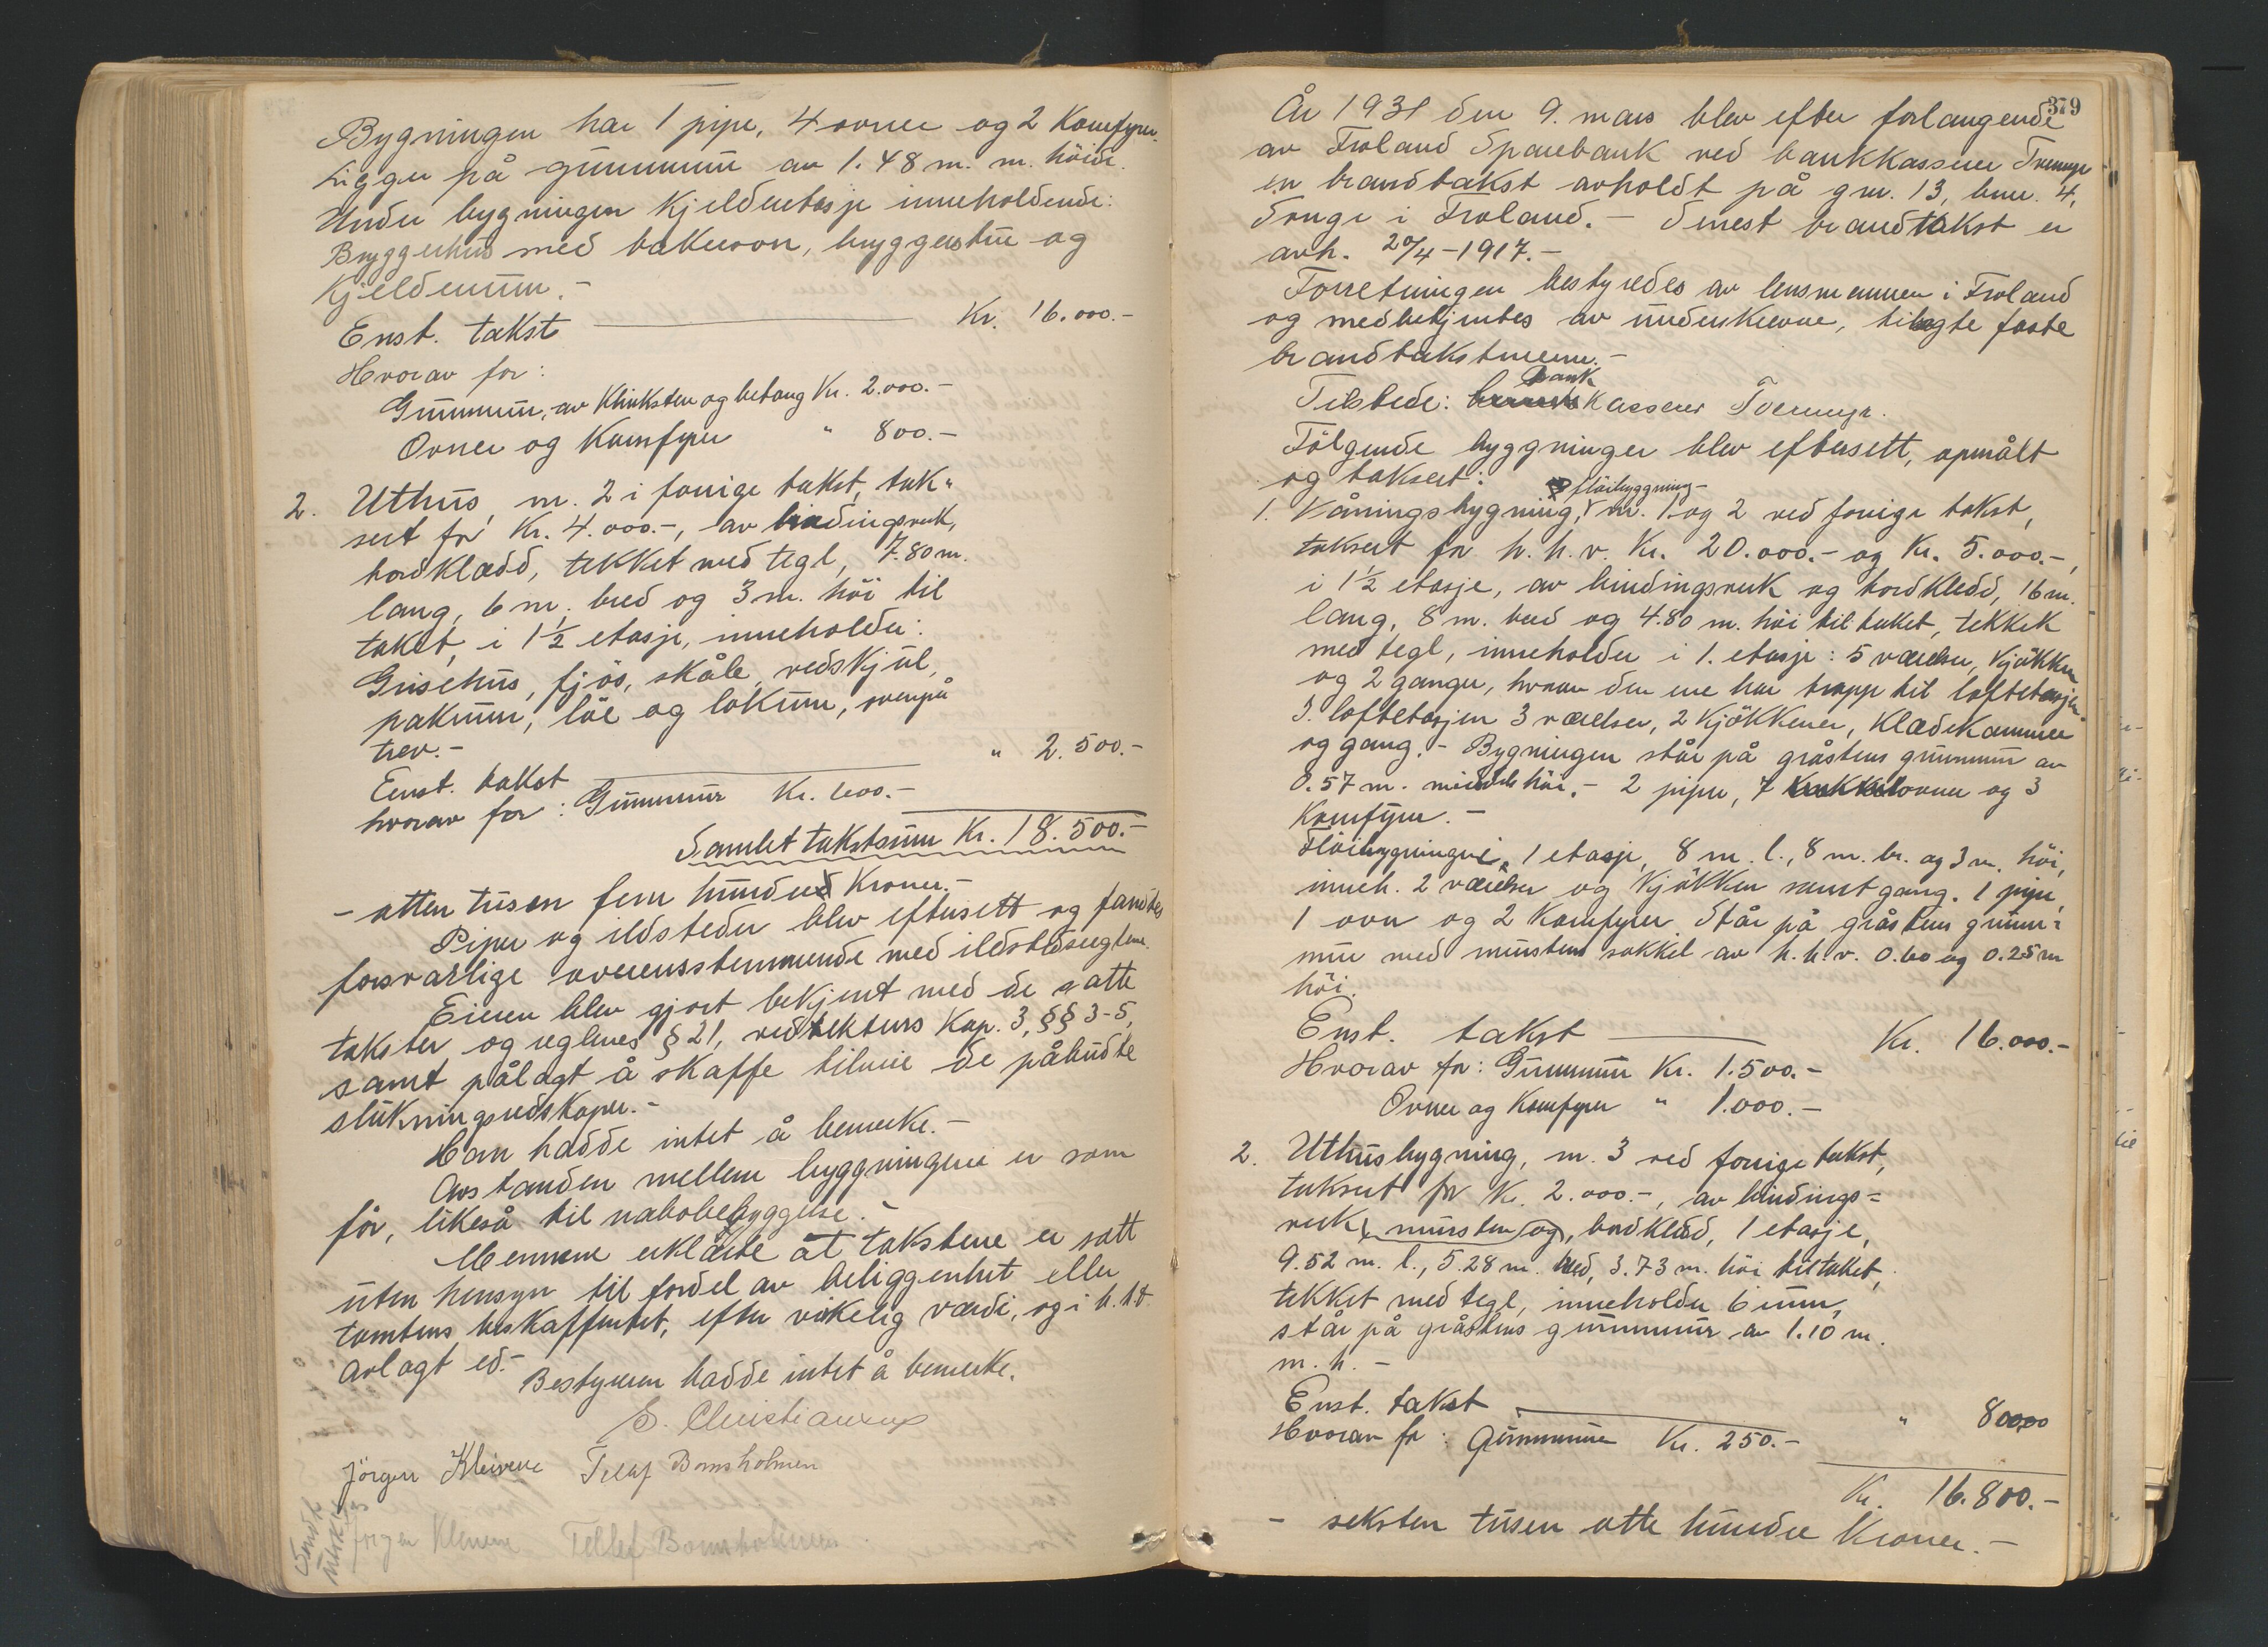 Bygningen har 1 pipe, 4 ovner og 2 Komfyrer.
Ligger på grunnmur av 1.48 m. m. höide.
Under bygningen Kjelderetasje inneholdende:
Bryggerhus med bakerovn, bryggerstue og
Kjelderrum.-
Enst. takst Kr. 16.000.-
Hvorav for:
Grunnmur, av Klinksten og betong Kr. 2.000.-
Ovner og Komfyrer " 800.-
2. Uthus, nr. 2 i forrige takst, tak-
sert for Kr. 4.000.-, av bindingsverk,
bordklædd, tekket med tegl, 7.80 m.
lang, 6 m. bred og 3 m. höi til
taket, i 1½ etasje, inneholder:
Grisehus, fjös, skåle, vedskjul,
pakrum, löe og lokum, ovenpå
trev.-
Enst. takst " 2.500.-
hvorav for: Grunnmur Kr. 600.-
Samlet takstsum Kr. 18.500.-
- atten tusen fem hundred Kroner.-
Piper og ildsteder blev eftersett og fandtes
forsvarlige overensstemmende med ildstedsreglene.
Eieren blev gjort bekjent med de satte
takster og reglenes § 21, vedtekters Kap. 3, §§ 3-5,
samt pålagt å skaffe tilveie de påbudte
slukningsredskaper.-
Han hadde intet å bemerke.-
Avstanden mellem byggningene er som
för, likeså til nabobebyggelse.-
Mennene erklærte at takstene er satt
uten hensyn til fordel av beliggenhet eller
tomtens beskaffenhet, efter virkelig værdi, og i h. t.
avlagt ed.-
Bestyreren hadde intet å bemerke.
E. Christiansen
Jörgen Kleivene Tellef Bomsholmen
Sendt
utskr.
Jörgen Kleivene Tellef Bomsholmen
379
År 1931 den 9. mars blev efter forlangende
av Froland Sparebank ved bankkasserer Tvermyr
en brandtakst avholdt på gnr. 13, bnr. 4,
Songe i Froland.- Senest brandtakst er
avh. 20/4-1917.-
Forretningen bestyredes av lensmannen i Froland
og medbetjentes av underskrevne, tilagte faste
brandtakstmenn.-
bank
Tilstede: Kasserer Tvermyr.
Fölgende byggninger blev eftersett, opmålt
og taksert:
flöibyggning-
1. Våningsbygning, nr. 1 og 2 ved forrige takst,
taksert for h. h. v. Kr. 20.000.- og Kr. 5.000.-,
i 1½ etasje, av bindingsverk og bordkledd, 16 m.
lang, 8 m. bred og 4.80 m. höi til taket, tekket
med tegl, inneholder i 1. etasje: 5 værelser, Kjökken
og 2 ganger, hvorav den ene har trapp til loftetasjen.
I loftetasjen 3 værelser, 2 Kjökkener, Klædekammer
og gang.- Bygningen står på gråstens grunnmur av
0.57 m. middels höi.- 2 piper, 7 ovner og 3
Komfyrer.-
Flöibygningen, 1 etasje, 8 m. l., 8 m. br. og 3 m. höi,
inneh. 2 værelser og Kjökken samt gang. 1 pipe,
1 ovn og 2 Komfyrer. Står på gråstens grunn-
mur med murstens sokkel av h. h. v. 0.60 og 0.25 m
höi.
Enst. takst Kr. 16.000.-
Hvorav for: Grunnmur Kr. 1.500.-
Ovner og Komfyrer " 1.000.-
2. Uthusbygning, nr. 3 ved forrige takst,
taksert for K. 2.000.-, av bindings-
verk, mursten og, bordklædd, 1 etasje,
9.52 m. l., 5.28 m. bred, 3.73 m. höi til taket,
tekket med tegl, inneholder 6 rum,
står på gråstens grunnmur av 1.10 m.
m. h. -
Enst. takst " 800,00
Hvorav for: Grunnmur Kr. 250.-
Kr. 16.800.-
- seksten tusen otte hundre Kroner.-